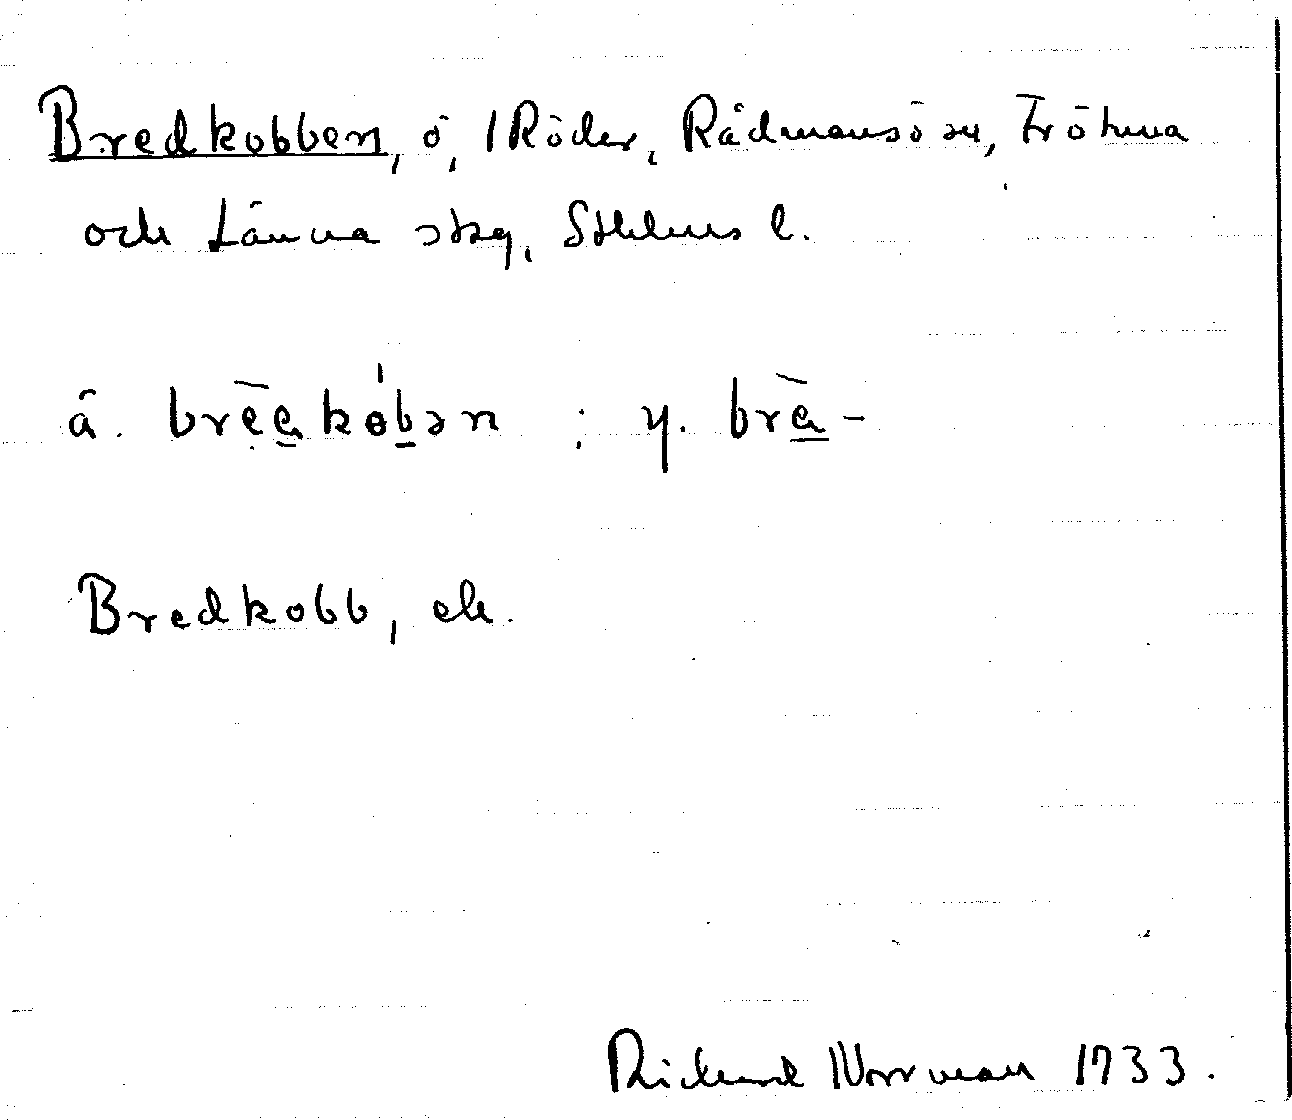 Bredkobben, ö, i Röder, Rådmansö sn, Fröhuna
och Länna skg, Sthlms l.
ä. brèe̯kóbən ; y. brè̱-
Bredkobb, ek.
Rickard Norrman 1933.